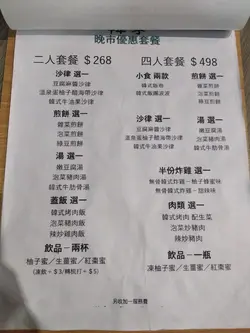 晚市優惠套餐
二人套餐 $268
沙律 選一
豆腐麻醬沙律
溫泉蛋柚子醋海帶沙律
韓式牛油果沙律
煎餅 選一
韓菜煎餅
泡菜煎餅
綠豆煎餅
湯 選一
嫩豆腐湯
泡菜豬肉湯
韓式牛肋骨湯
蓋飯 選一
韓式烤肉飯
泡菜豬肉飯
辣炒雞肉飯
飲品－兩杯
柚子蜜／生薑蜜／紅棗蜜
(凍飲 + $3/轉梳打 + $5)
四人套餐 $498
小食 兩款
韓式飯卷
韓式飯團波波
煎餅 選一
韓菜煎餅
泡菜煎餅
綠豆煎餅
沙律 選一
豆腐麻醬沙律
溫泉蛋柚子醋海帶沙律
韓式牛油果沙律
湯 選一
嫩豆腐湯
泡菜豬肉湯
韓式牛肋骨湯
半份炸雞 選一
無骨韓式炸雞－柚子蜂蜜味
無骨韓式炸雞－甜辣味
肉類 選一
韓式烤肉 配生菜
泡菜炒豬肉
辣炒豬肉
飲品－一瓶
凍柚子蜜／生薑蜜／紅棗蜜
另收加一服務費